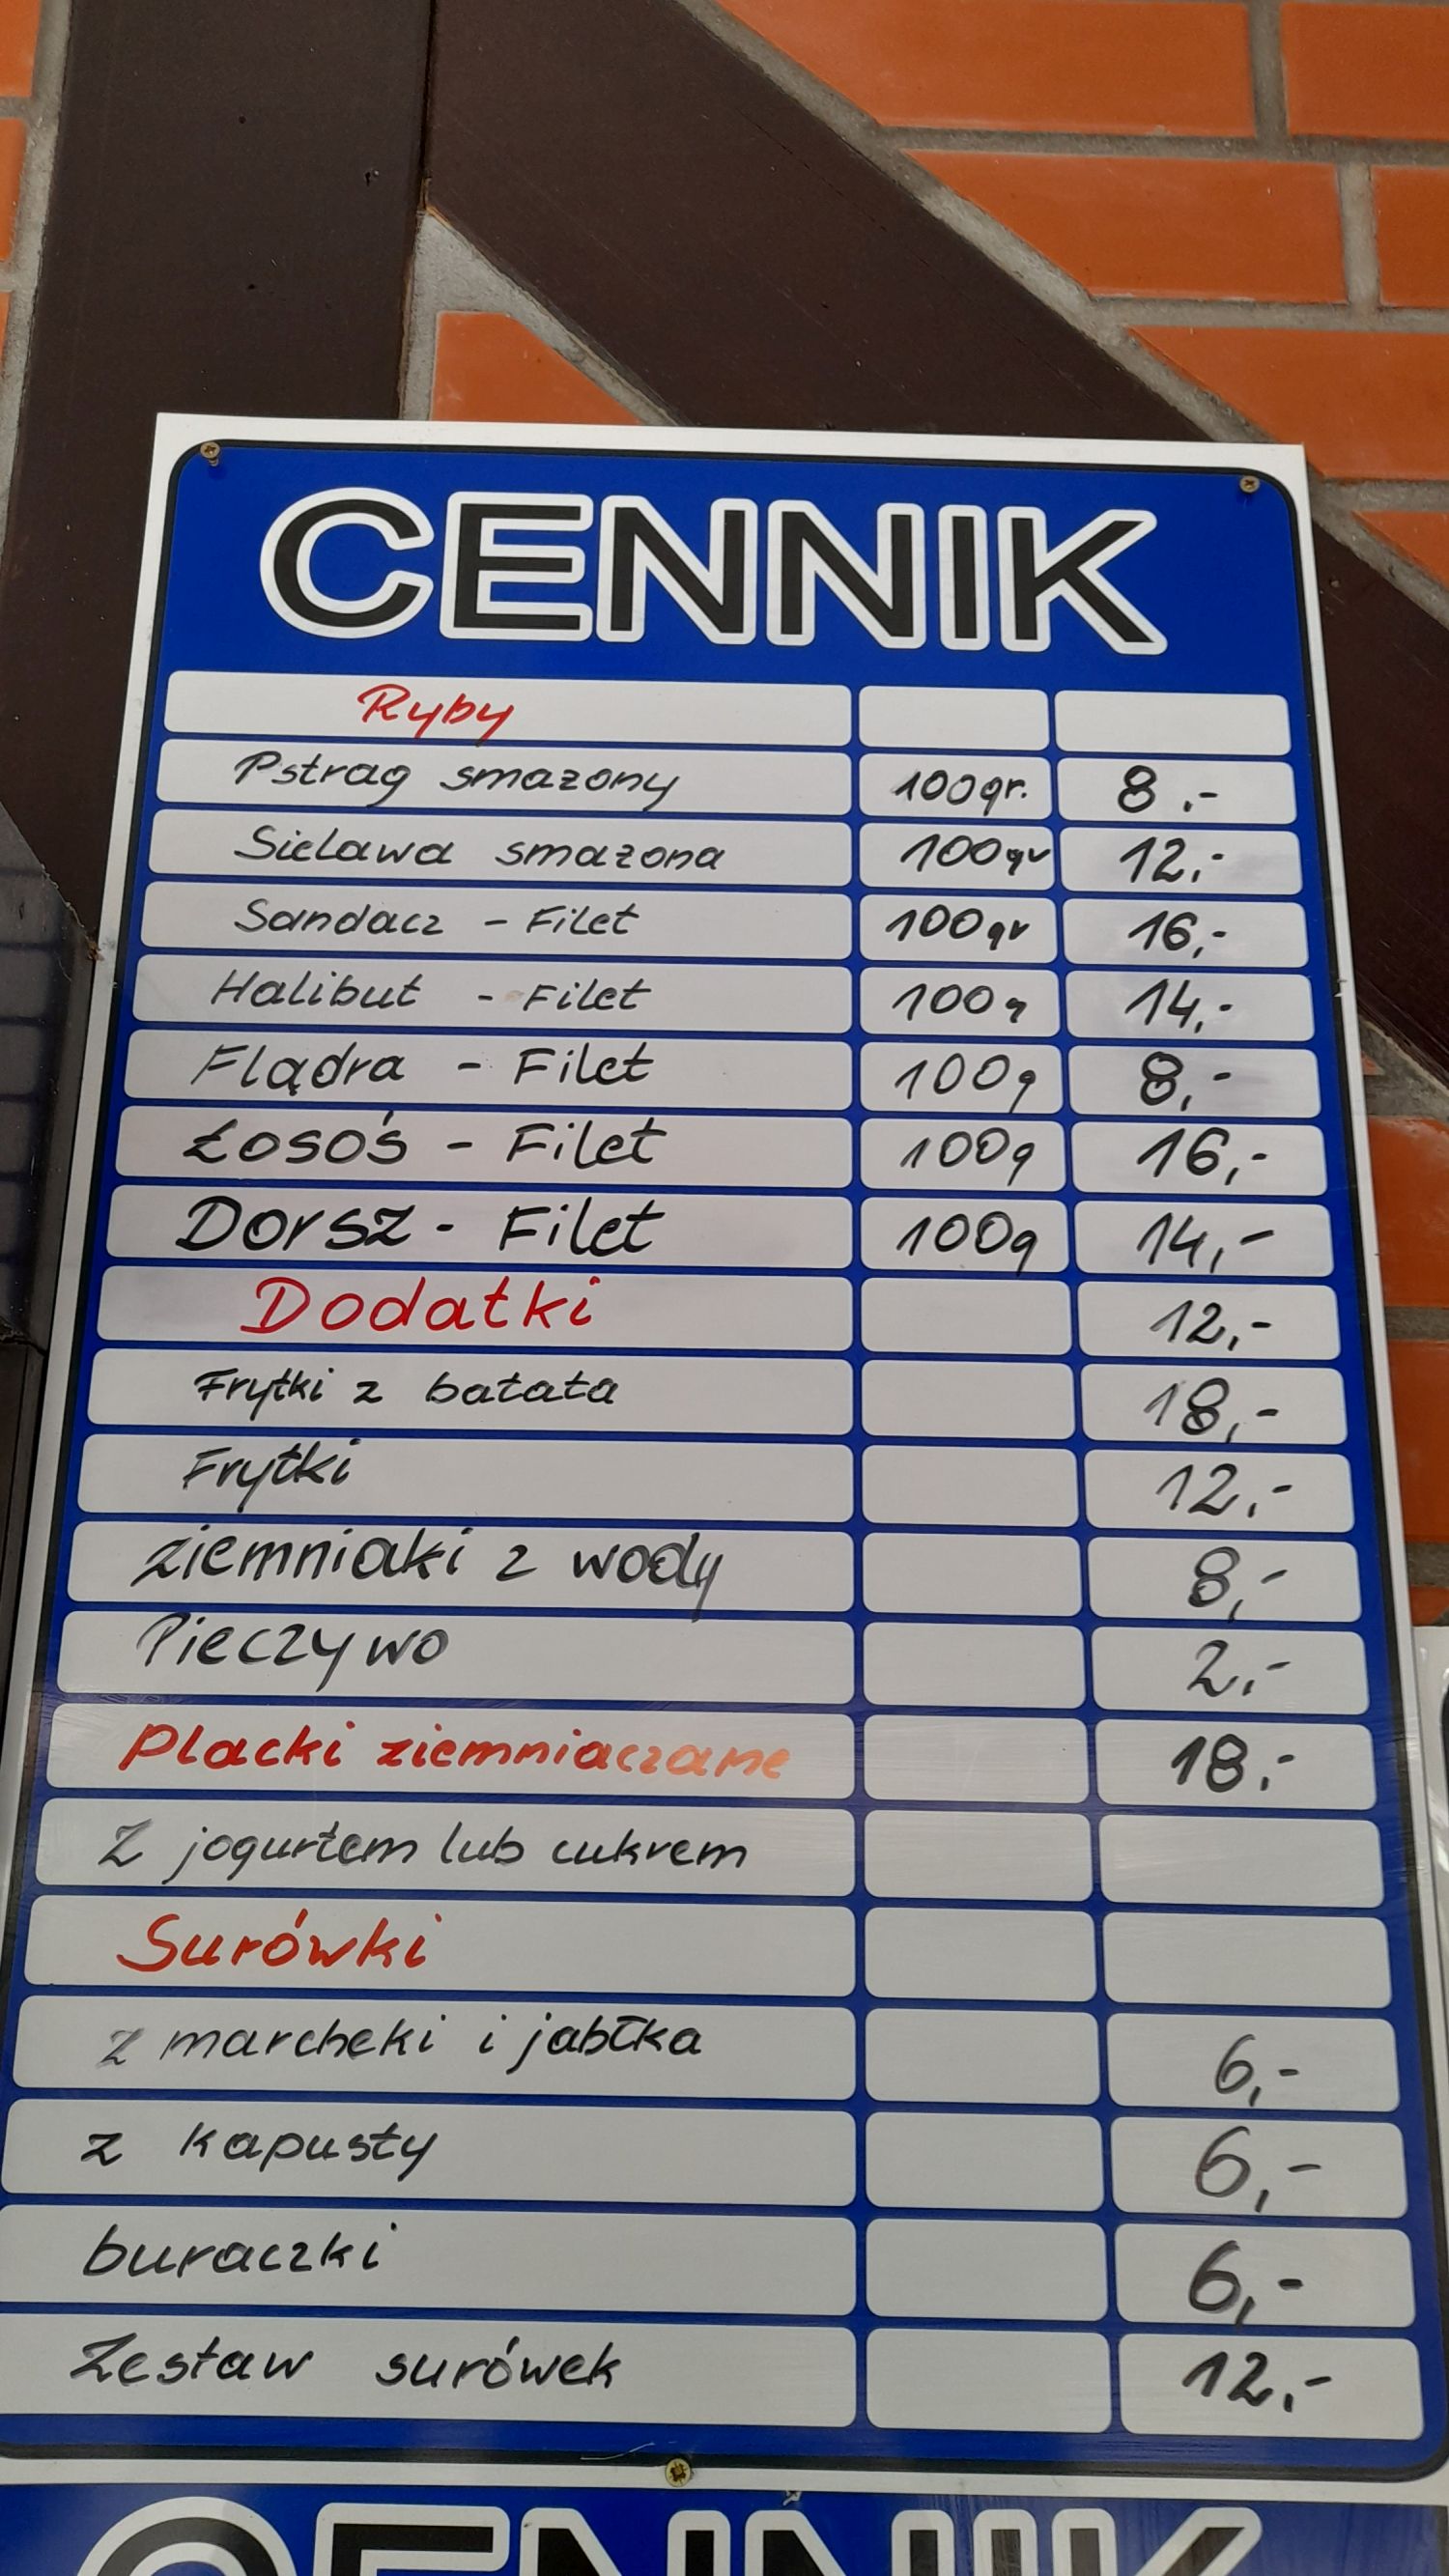 CENNIK
Ryby
Pstrag smazony 100gr. 8.-
Sielawa smazona 100gr 12.-
Sandacz - Filet 100gr 16,-
Halibut - Filet 100g 14,-
Flądra - Filet 100g 8,-
Łosoś - Filet 100g 16,-
Dorsz - Filet 100g 14,-
Dodatki 12,-
Frytki z batata 18,-
Frytki 12,-
ziemniaki z wody 8,-
Pieczywo 2,-
Placki ziemniaczane 18.-
Z jogurtem lub cukrem
Surówki
z marcheki i jabłka 6,-
z kapusty 6,-
buraczki 6,-
Zestaw surówek 12,-
CENNIK